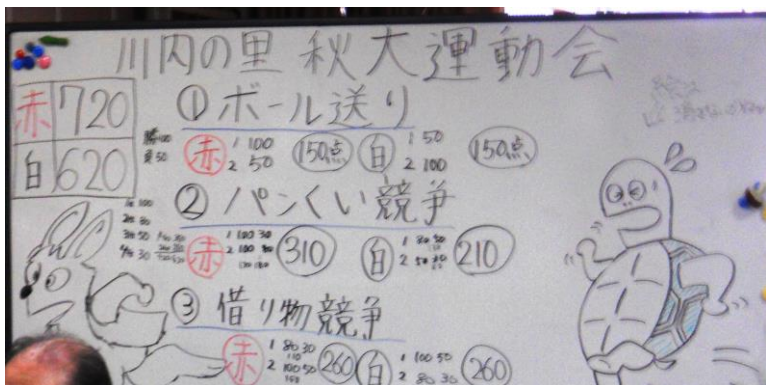 川内の里 秋大運動会
赤 720
白 620
① ボール送り
勝 100
負 50
赤 1 100 2 50 150点 白 1 50 2 100 150点
② パンくい競争
赤 1 100 30 2 100 80 310 白 210
③ 借り物競争
赤 1 80 30 2 100 50 260 白 1 100 50 2 80 30 260